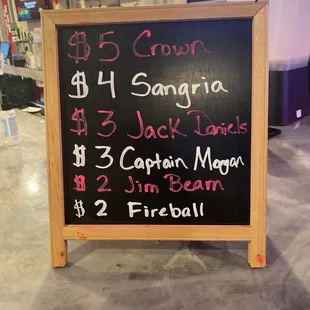 $ 5 Crown
$ 4 Sangria
$ 3 Jack Daniels
$ 3 Captain Morgan
$ 2 Jim Beam
$ 2 Fireball